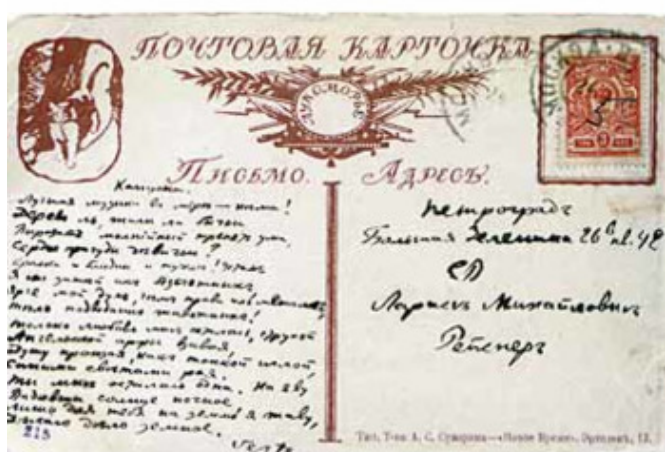 ПОЧТОВАЯ КАРТОЧКА
ЛУКОМОРЬЕ
МОСКВА
ПИСЬМО.
АДРЕСЪ.
Канцона.
Лучшая музыка въ мірѣ — нѣма!
Дерево ль, жилы ли бычьи
Выразятъ молнійный трепетъ ума,
Сердца причуды дѣвичьи?
Краски и блѣдны и тусклы! Усталъ
Я отъ затѣй ихъ
Ярче мой духъ, чѣмъ трава иль металлъ,
Тѣло подводныхъ животныхъ!
Только любовь мнѣ осталась, струной
Ангельской арфы взывая,
Душу пронзая, какъ тонкой иглой,
Синими свѣтами рая.
Ты мнѣ осталась одна. На яву
Видѣвшій солнце ночное,
Лишь для тебя на землѣ я живу,
Дѣлаю дѣло земное.
215
Петроградъ
Большая Зеленина 26 кв. 42
ЕВ
Ларисѣ Михайловнѣ
Рейснеръ
Тип. Т-ва А. С. Суворина—«Новое Время». Эртелевъ, 13.